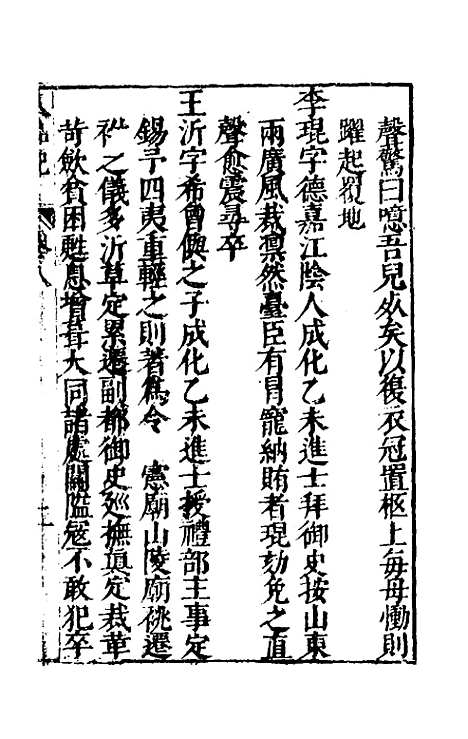 聲驚曰噫吾兒必矣以復衣冠置柩上每母慟則
躍起覆地
李琨字德嘉江陰人成化乙未進士拜御史按山東
兩廣風裁凛然臺臣有冐寵納賄者琨劾免之直
聲愈震尋卒
王沂字希曾㒜之子成化乙未進士授禮部主事定
錫予四夷重輕之則著為令 憲廟山陵廟祧遷
祔之儀多沂草定累遷副都御史廵撫真定裁革
苛歛貧困甦息增葺大同諸處關隘寇不敢犯卒